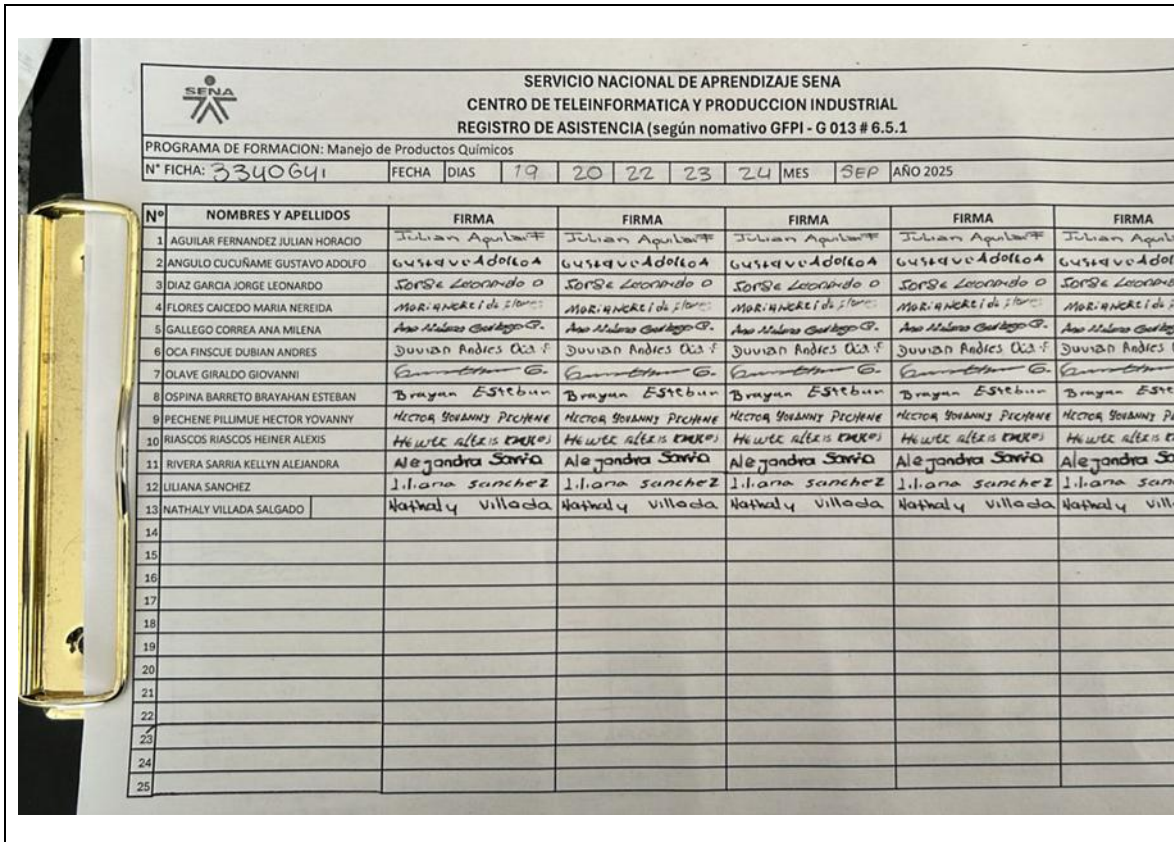 SENA
SERVICIO NACIONAL DE APRENDIZAJE SENA
CENTRO DE TELEINFORMATICA Y PRODUCCION INDUSTRIAL
REGISTRO DE ASISTENCIA (según nomativo GFPI - G 013 # 6.5.1
PROGRAMA DE FORMACION: Manejo de Productos Químicos
N° FICHA: 3340641 FECHA DIAS 19 20 22 23 24 MES SEP AÑO 2025
Nº NOMBRES Y APELLIDOS FIRMA FIRMA FIRMA FIRMA FIRMA
1 AGUILAR FERNANDEZ JULIAN HORACIO Julian Aguilar F Julian Aguilar F Julian Aguilar F Julian Aguilar F Julian
2 ANGULO CUCUÑAME GUSTAVO ADOLFO GustavoAdolfoA GustavoAdolfoA GustavoAdolfoA GustavoAdolfoA
3 DIAZ GARCIA JORGE LEONARDO Jorge Leonardo D Jorge Leonardo D Jorge Leonardo D Jorge Leonardo D Jorge
4 FLORES CAICEDO MARIA NEREIDA Maria Nereida Flores Maria Nereida Flores Maria Nereida Flores Maria Nereida Flores
5 GALLEGO CORREA ANA MILENA Ana Milena Gallego C. Ana Milena Gallego C. Ana Milena Gallego C. Ana Milena Gallego C. Ana Milena
6 OCA FINSCUE DUBIAN ANDRES Duvian Andres Oca F Duvian Andres Oca F Duvian Andres Oca F Duvian Andres Oca F Duvian Andres
7 OLAVE GIRALDO GIOVANNI G. G. G. G.
8 OSPINA BARRETO BRAYAHAN ESTEBAN Brayan Esteban Brayan Esteban Brayan Esteban Brayan Esteban Brayan
9 PECHENE PILLIMUE HECTOR YOVANNY HECTOR YOVANNY PECHENE HECTOR YOVANNY PECHENE HECTOR YOVANNY PECHENE HECTOR YOVANNY PECHENE HECTOR YOVANNY
10 RIASCOS RIASCOS HEINER ALEXIS
11 RIVERA SARRIA KELLYN ALEJANDRA Alejandra Sarria Alejandra Sarria Alejandra Sarria Alejandra Sarria Alejandra
12 LILIANA SANCHEZ Liliana Sanchez Liliana Sanchez Liliana Sanchez Liliana Sanchez Liliana
13 NATHALY VILLADA SALGADO Nathaly Villada Nathaly Villada Nathaly Villada Nathaly Villada Nathaly
14
15
16
17
18
19
20
21
22
23
24
25